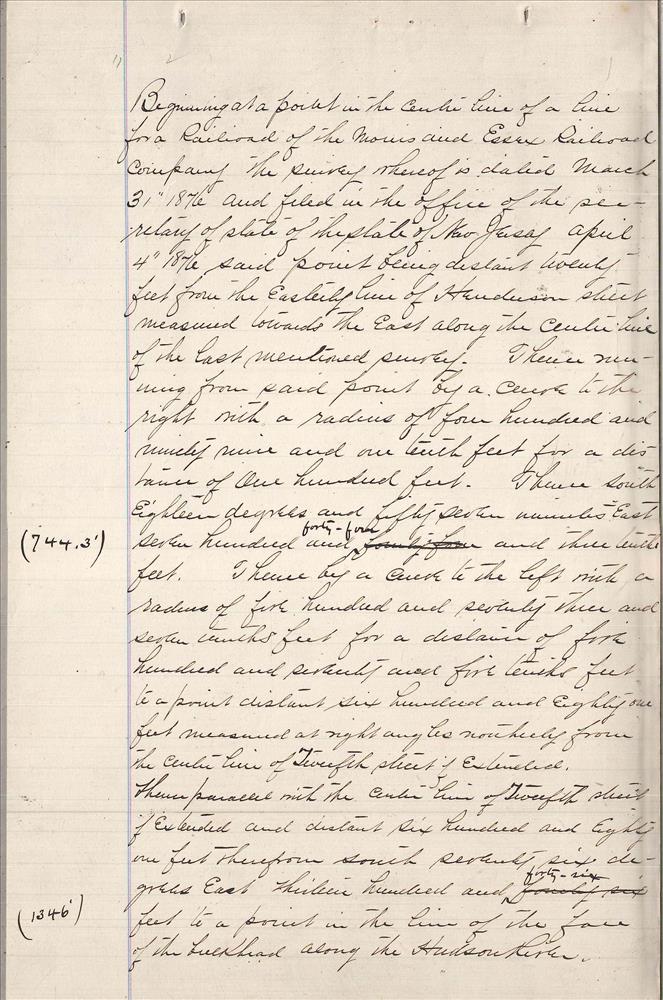 Beginning at a point in the centre line of a line
for a Railroad of the Morris and Essex Railroad
Company the survey whereof is dated March
31" 1876 and filed in the office of the sec-
retary of state of the state of New Jersey April
4" 1876 said point being distant twenty
feet from the Easterly line of Henderson street
measured towards the East along the centre line
of the last mentioned survey. Thence run-
ning from said point by a curve to the
right with a radius of four hundred and
ninety nine and one tenth feet for a dis
tance of One hundred feet. Thence south
Eighteen degrees and fifty seven minutes East
forty-four
(744.3') seven hundred and fourty four and three tenths
feet. Thence by a curve to the left with a
radius of five hundred and seventy three and
seven tenths feet for a distance of five
hundred and seventy and five tenths feet
to a point distant six hundred and Eighty one
feet measured at right angles northerly from
the centre line of Twelfth street if Extended.
Thence parallel with the centre line of Twelfth street
if Extended and distant six hundred and Eighty
one feet therefrom south seventy six de-
forty-six
grees East thirteen hundred and fourty six
(1346') feet to a point in the line of the face
of the bulkhead along the Hudson River.